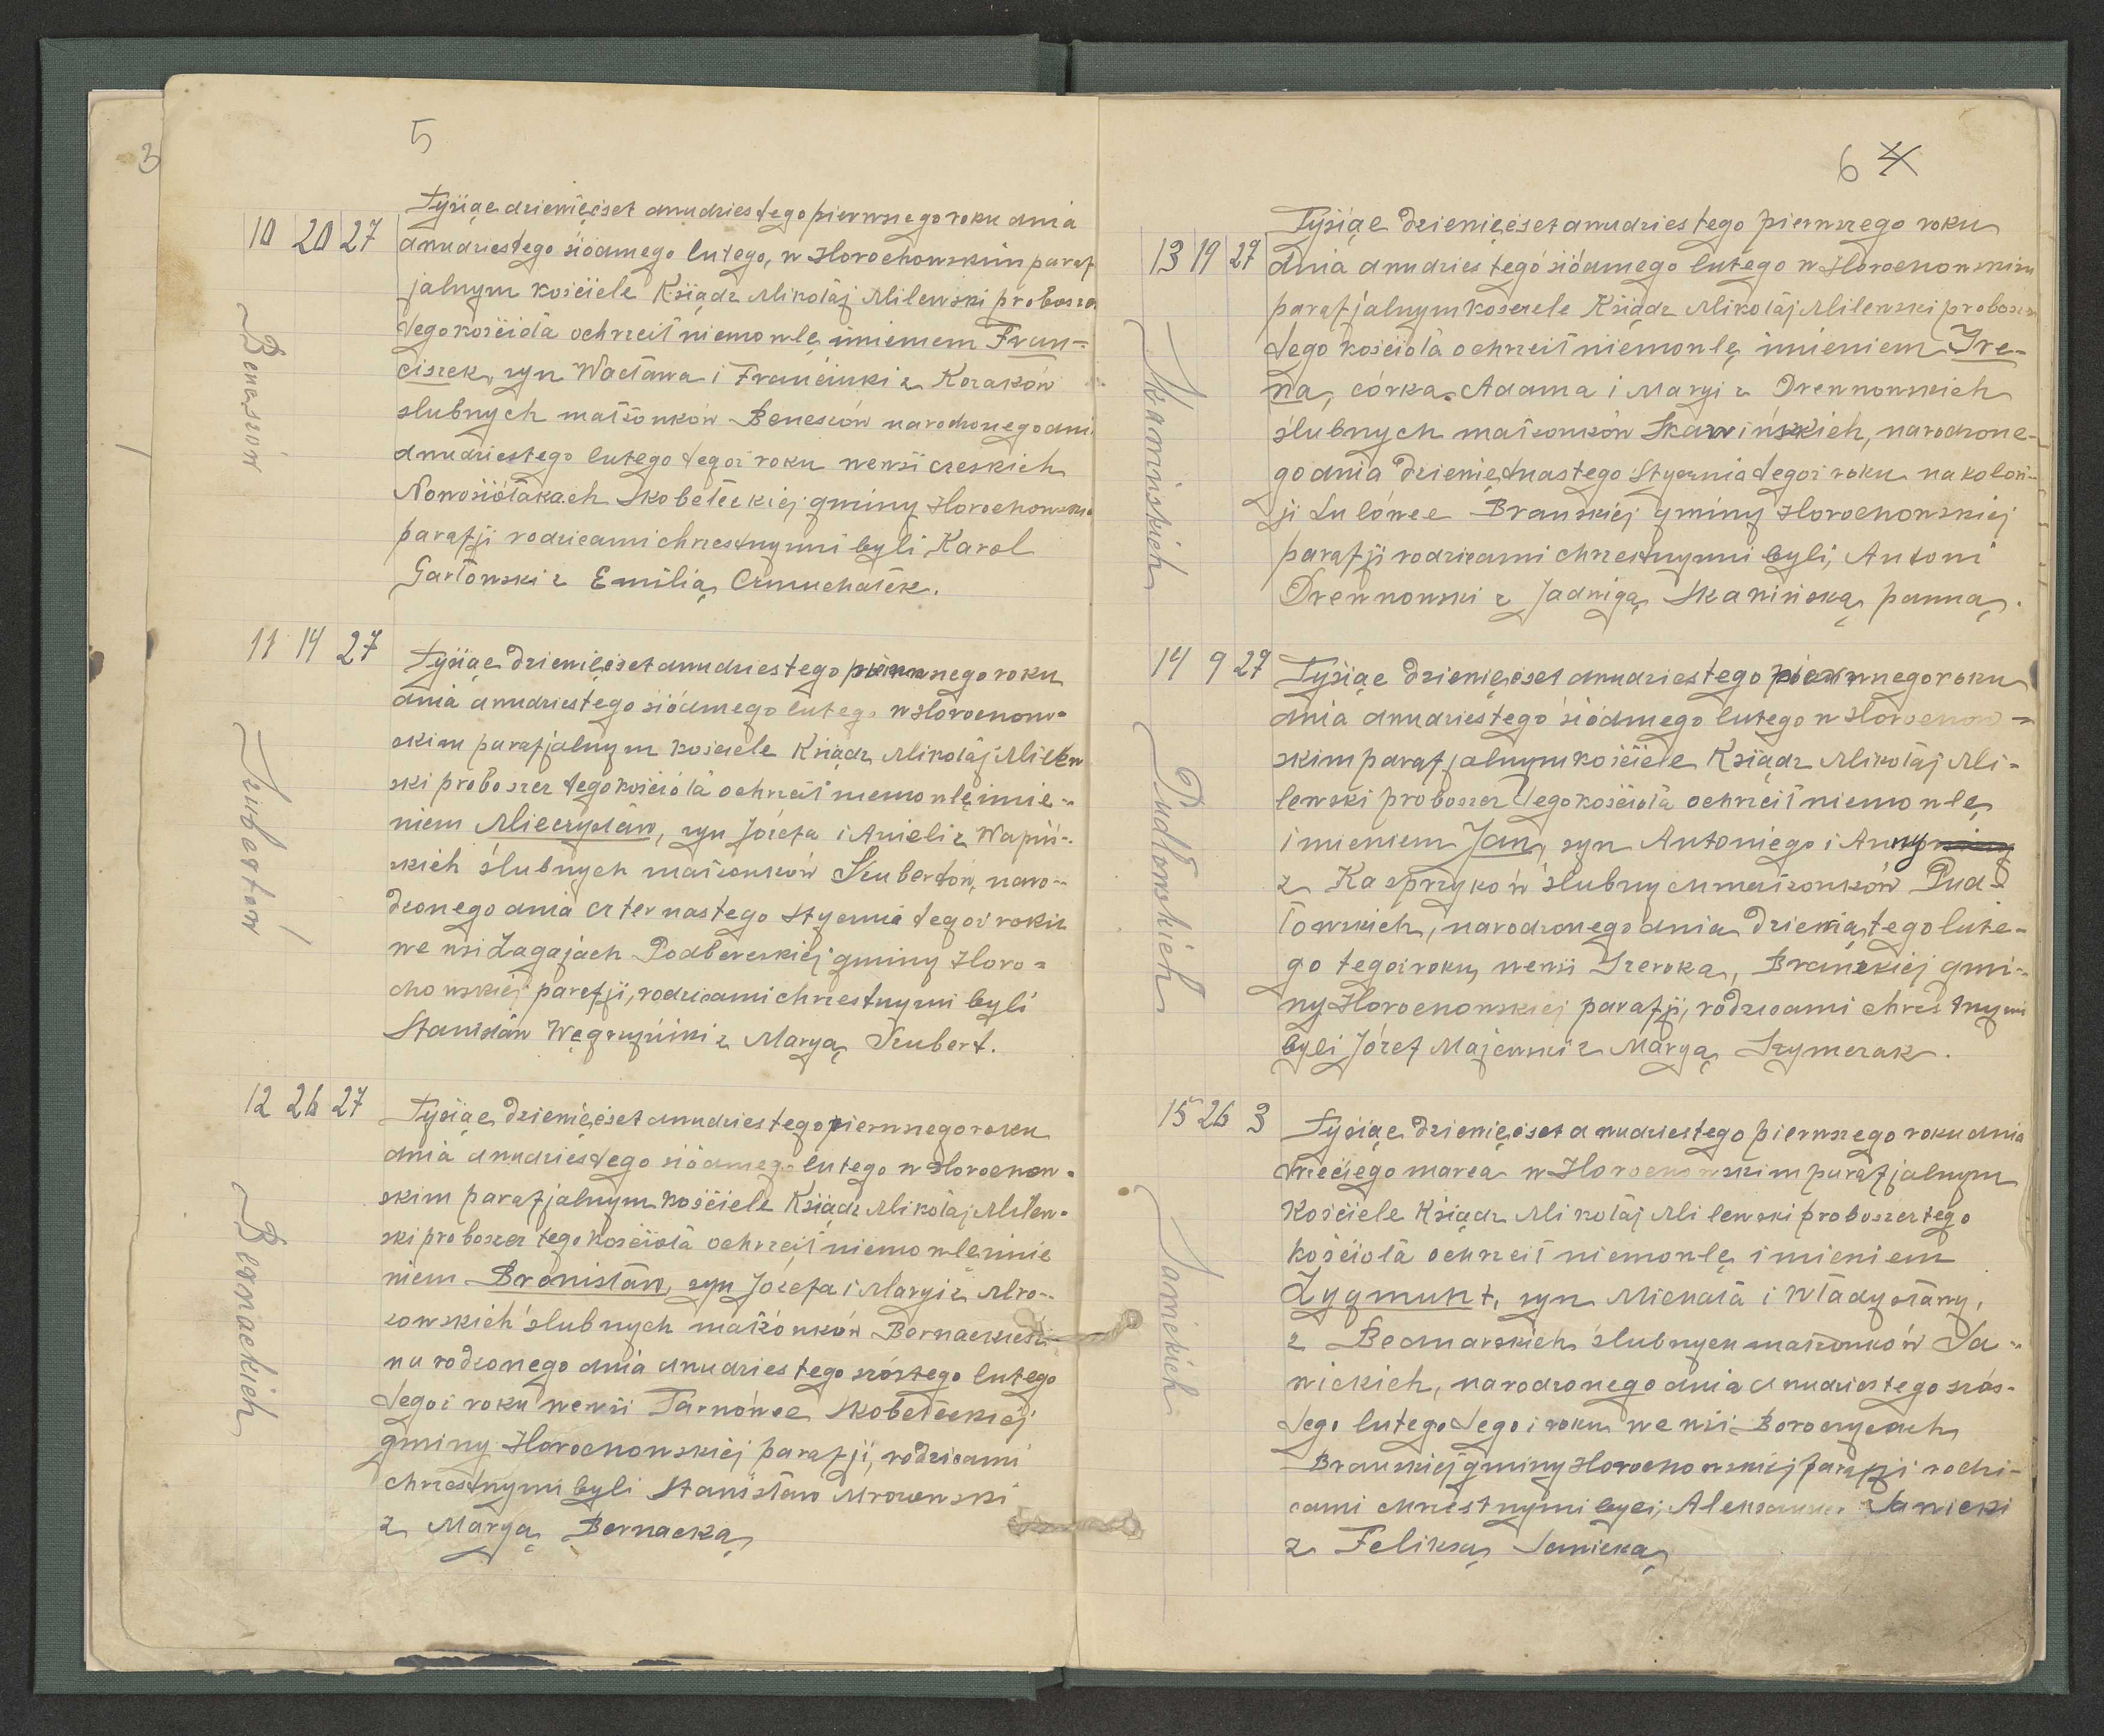 3
5
10 20 27
Beneszów
Tysiąc dziewięćset dwudziestego pierwszego roku dnia
dwudziestego siódmego lutego, w Horochowskim paraf
jalnym kościele Ksiądz Mikołaj Milewski probosz
tego kościoła ochrzcił niemowlę imieniem Fran-
ciszek, syn Wacława i Franciszki z Kozaków
ślubnych małżonków Beneszów narodzonego dni
dwudziestego lutego tegoż roku we wsi czeskich
Nowosiółkach Skobełeckiej gminy Horochowski
parafji rodzicami chrzestnymi byli Karol
Garłowski z Emilią
11 14 27
Szubertów
Tysiąc dziewięćset dwudziestego pierwszego roku
dnia dwudziestego siódmego lutego w Horochow-
skim parafjalnym kościele Ksiądz Mikołaj Milew
ski proboszcz tego kościoła ochrzcił niemowlę imie-
niem Mieczysław, syn Józefa i Anieli z Wapiń-
skich ślubnych małżonków Szubertów, naro-
dzonego dnia czternastego stycznia tegoż roku
we wsi Zagajach Podbereskiej gminy Horo-
chowskiej parafji, rodzicami chrzestnymi byli
Stanisław z Maryą Szubert.
12 26 27
Bernackich
Tysiąc dziewięćset dwudziestego pierwszego roku
dnia dwudziestego siódmego lutego w Horochow-
skim parafjalnym kościele Ksiądz Mikołaj Milew-
ski proboszcz tego kościoła ochrzcił niemowlę imie
niem Bronisław, syn Józefa i Maryi z Mro-
zowskich ślubnych małżonków Bernackich
narodzonego dnia dwudziestego szóstego lutego
tegoż roku we wsi Tarnówce Skobełeckiej
gminy Horochowskiej parafji, rodzicami
chrzestnymi byli Stanisław Mrozowski
z Maryą Bernacką
6 4
13 19 27
Skawińskich
Tysiąc dziewięćset dwudziestego pierwszego roku
dnia dwudziestego siódmego lutego w Horochowskim
parafjalnym kościele Ksiądz Mikołaj Milewski probosz
tego kościoła ochrzcił niemowlę imieniem Ire-
na, córka Adama i Maryi z Drewnowskich
ślubnych małżonków Skawińskich, narodzone-
go dnia dziewiętnastego stycznia tegoż roku na kolon-
ji Lulówce Brańskiej gminy Horochowskiej
parafji rodzicami chrzestnymi byli, Antoni
Drewnowski z Jadwigą Skawińską panną.
14 9 27
Pudłowskich
Tysiąc dziewięćset dwudziestego pierwszego roku
dnia dwudziestego siódmego lutego w Horochow-
skim parafjalnym kościele Ksiądz Mikołaj Mi-
lewski proboszcz tego kościoła ochrzcił niemowlę
imieniem Jan, syn Antoniego i Anny
z Kasprzyków ślubnych małżonków Pud-
łowskich, narodzonego dnia dziewiątego lute-
go tegoż roku, we wsi Szeroka, Brańskiej gmi-
ny Horochowskiej parafji, rodzicami chrzestnymi
byli Józef Majewski z Maryą Szymczak.
15 26 3
Sawickich
Tysiąc dziewięćset dwudziestego pierwszego roku dnia
trzeciego marca w Horochowskim parafjalnym
kościele Ksiądz Mikołaj Milewski proboszcz tego
kościoła ochrzcił niemowlę imieniem
Zygmunt, syn Michała i Władysławy,
z Bednarskich ślubnych małżonków Sa-
wickich, narodzonego dnia dwudziestego szós-
tego lutego tegoż roku we wsi Boroczycach
Brańskiej gminy Horochowskiej parafji rodzi-
cami chrzestnymi byli, Aleksander Sawicki
z Feliksą Sawicką